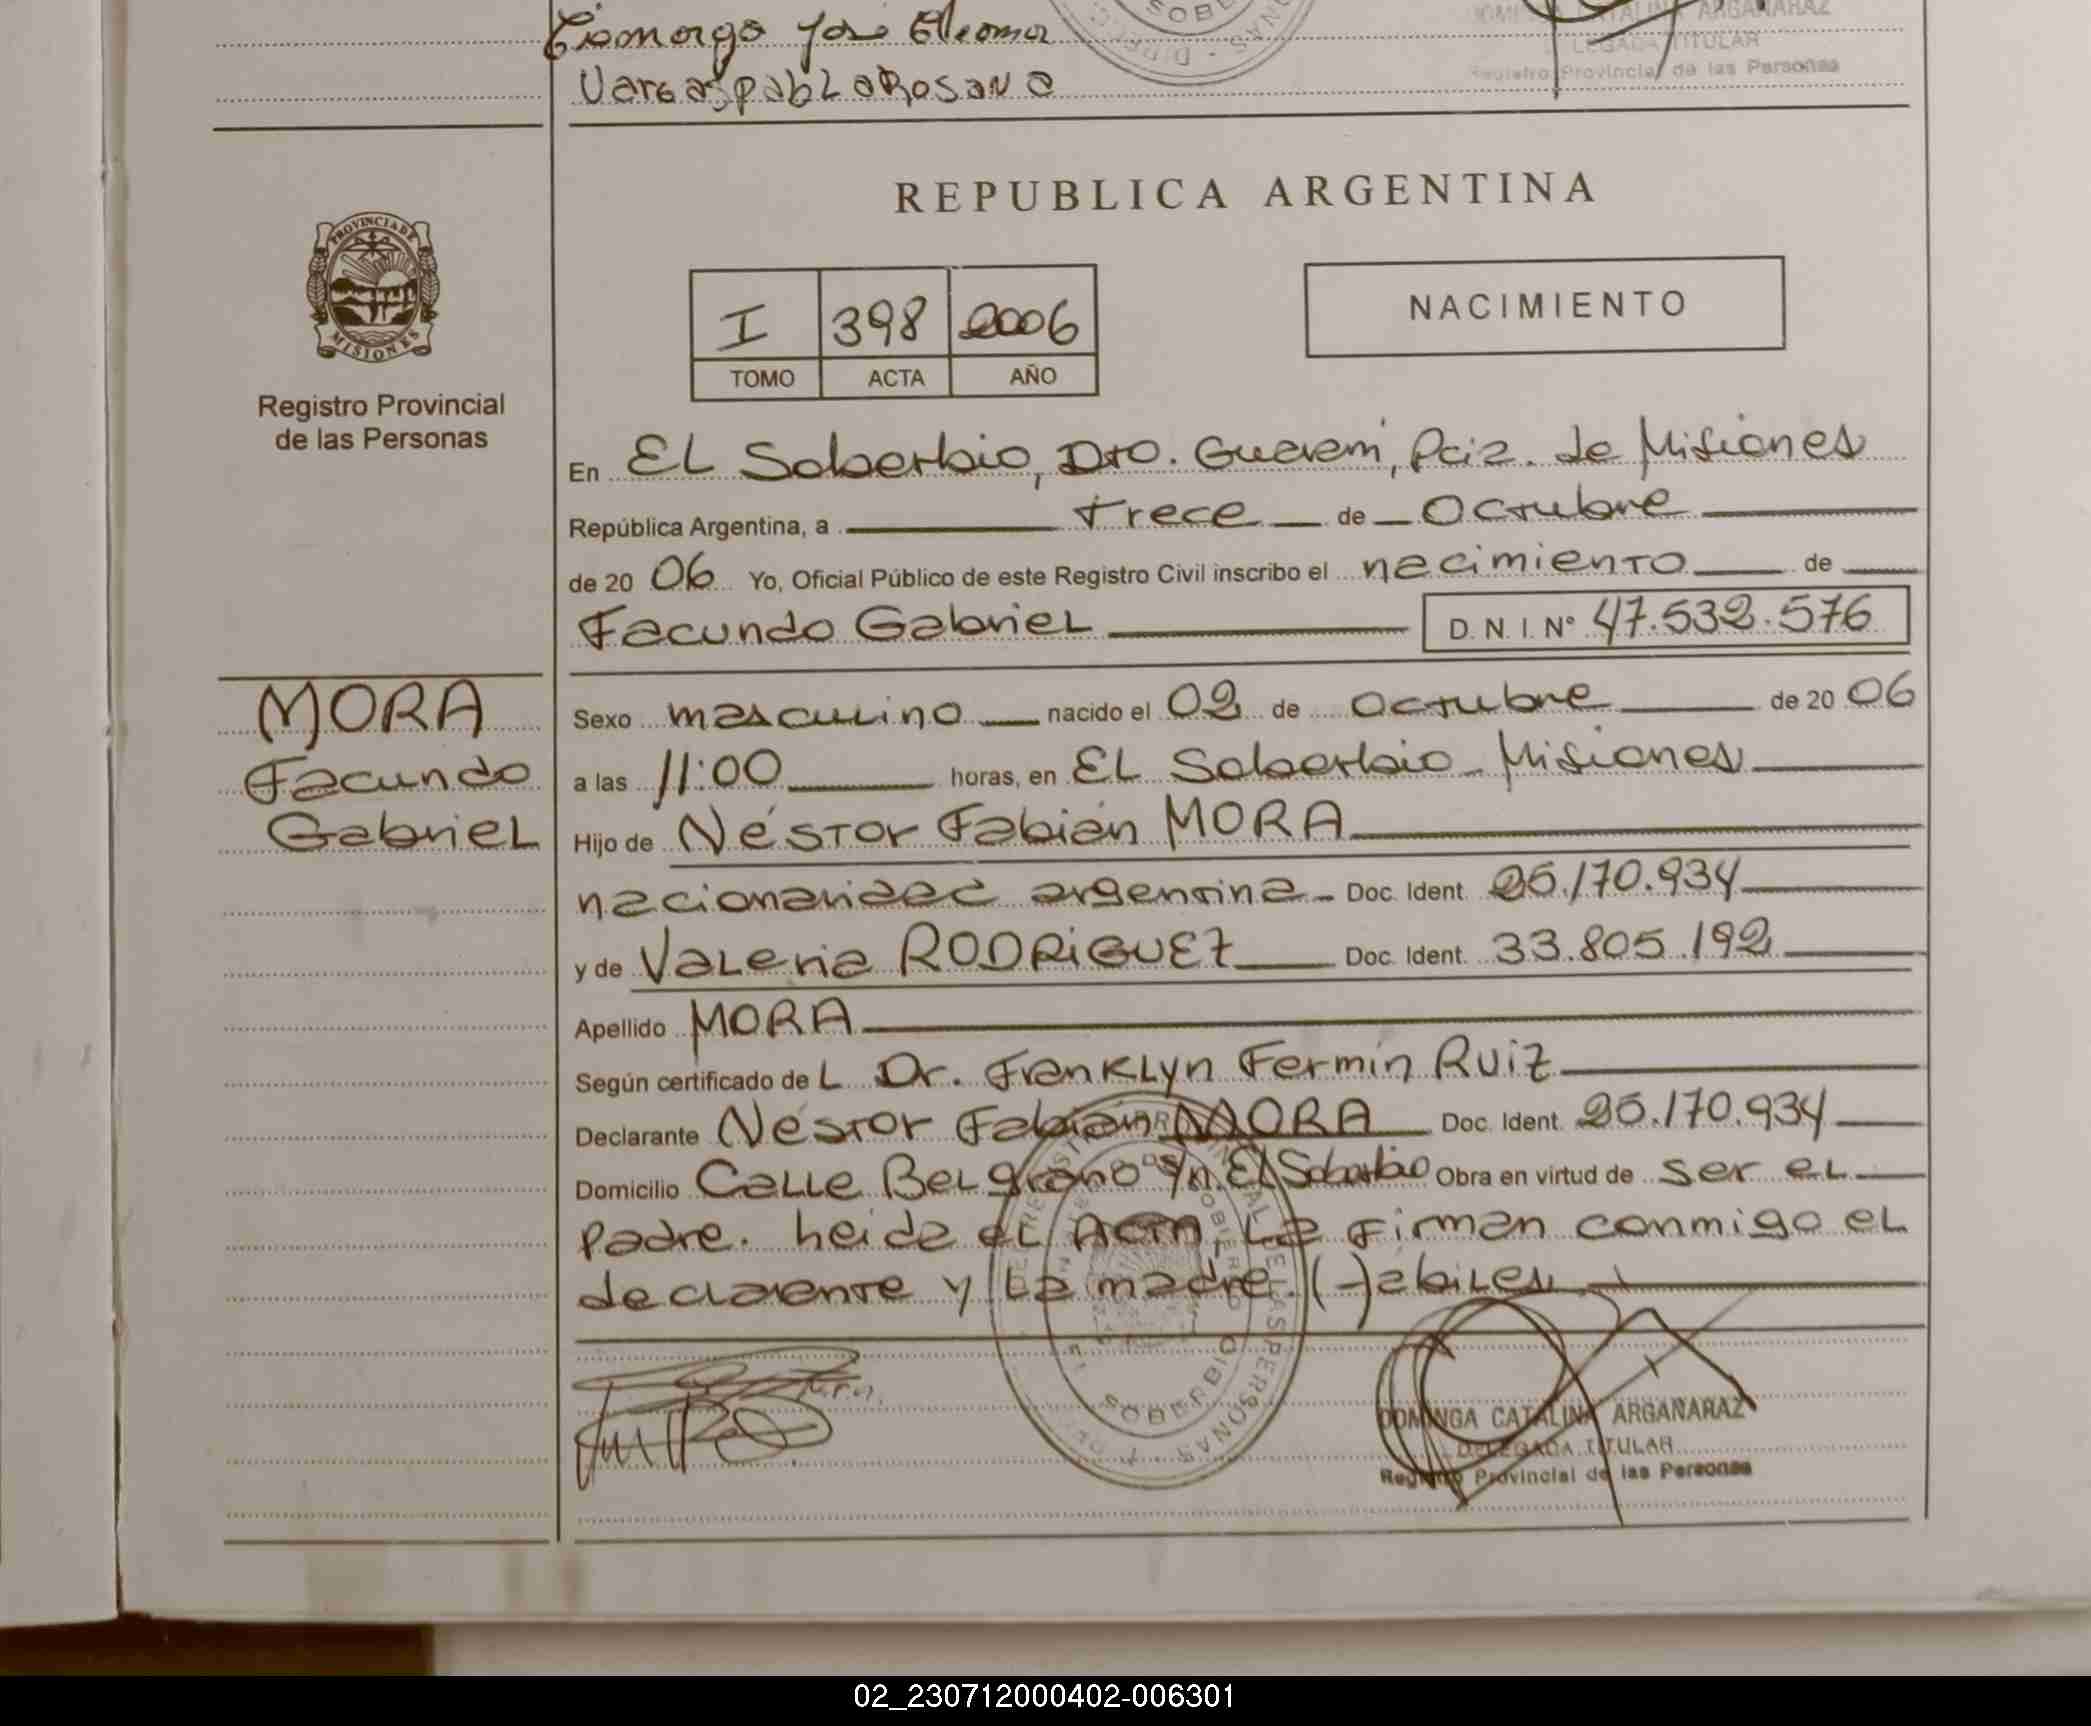 Camargo José Eleomar
Vargas pabLa Rosana
SOBE
CATALINA ARGAÑARAZ
DELEGADA TITULAR
Registro Provincial de las Personas
REPUBLICA ARGENTINA
PROVINCIA DE
MISIONES
Registro Provincial
de las Personas
I 398 2006
TOMO ACTA AÑO
NACIMIENTO
En EL Soberbio, Dto. Guaraní, Pcia. de Misiones
República Argentina, a trece de Octubre
de 20 06 Yo, Oficial Público de este Registro Civil inscribo el nacimiento de
Facundo Gabriel D.N.I. N° 47.532.576
MORA
Facundo
Gabriel
Sexo masculino nacido el 02 de Octubre de 20 06
a las 11:00 horas, en EL Soberbio - Misiones
Hijo de Néstor Fabián MORA
nacionalidad argentina - Doc. Ident. 25.170.934
y de Valeria RODRiGUEZ Doc. Ident. 33.805.192
Apellido MORA
Según certificado de L Dr. Franklyn Fermín Ruiz
Declarante Néstor Fabián MORA Doc. Ident. 25.170.934
Domicilio Calle Belgrano s/n. El Soberbio Obra en virtud de ser el
padre. heida el Acta, La firman conmigo el
declarante y La madre. (-)abiles
SOBERBIO
DOMINGA CATALINA ARGAÑARAZ
DELEGADA TITULAR
Registro Provincial de las Personas
02_230712000402-006301